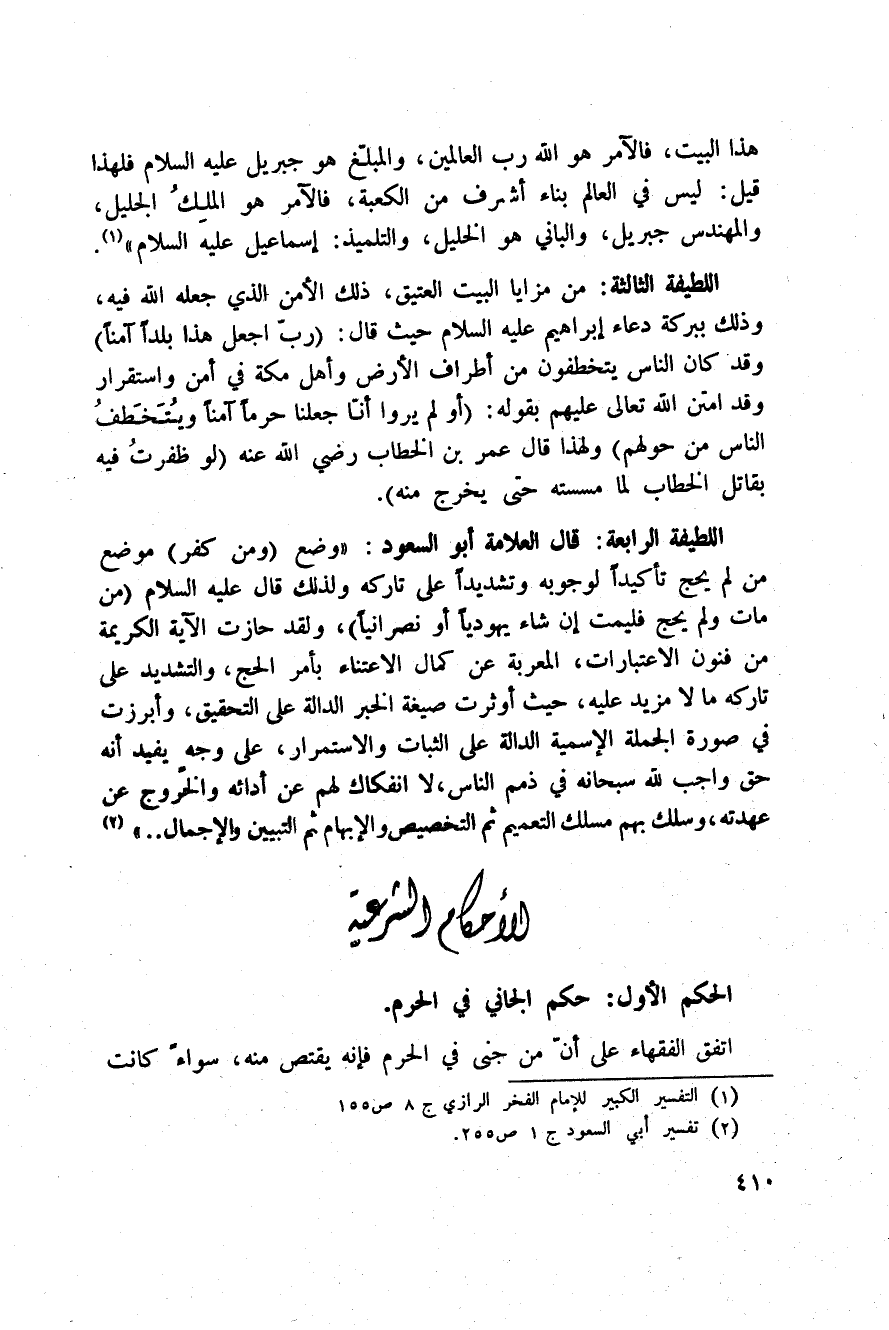 هذا البيت، فالآمر هو الله رب العالمين، والمبلّغ هو جبريل عليه السلام فلهذا
قيل: ليس في العالم بناء أشرف من الكعبة، فالآمر هو الملكُ الجليل،
والمهندس جبريل، والباني هو الخليل، والتلميذ: إسماعيل عليه السلام»(١).
اللطيفة الثالثة: من مزايا البيت العتيق، ذلك الأمن الذي جعله الله فيه،
وذلك ببركة دعاء إبراهيم عليه السلام حيث قال: (ربّ اجعل هذا بلداً آمناً)
وقد كان الناس يتخطفون من أطراف الأرض وأهل مكة في أمن واستقرار
وقد امتن الله تعالى عليهم بقوله: (أو لم يروا أنّا جعلنا حرماً آمناً ويُتَخَطفُ
الناس من حولهم) ولهذا قال عمر بن الخطاب رضي الله عنه (لو ظفرتُ فيه
بقاتل الخطاب لما مسسته حتى يخرج منه).
اللطيفة الرابعة: قال العلامة أبو السعود : «وضع (ومن كفر) موضع
من لم يحج تأكيداً لوجوبه وتشديداً على تاركه ولذلك قال عليه السلام (من
مات ولم يحج فليمت إن شاء يهودياً أو نصرانياً)، ولقد حازت الآية الكريمة
من فنون الاعتبارات، المعربة عن كمال الاعتناء بأمر الحج، والتشديد على
تاركه ما لا مزيد عليه، حيث أوثرت صيغة الخبر الدالة على التحقيق، وأبرزت
في صورة الجملة الإسمية الدالة على الثبات والاستمرار، على وجه يفيد أنه
حق واجب لله سبحانه في ذمم الناس،لا انفكاك لهم عن أدائه والخروج عن
عهدته،وسلك بهم مسلك التعميم ثم التخصيص،والإبهام ثم التبيين والإجمال..» (٢)
الأحكام الشرعية
الحكم الأول: حكم الجاني في الحرم.
اتفق الفقهاء على أنّ من جنى في الحرم فإنه يقتص منه، سواءً كانت
(١) التفسير الكبير للإمام الفخر الرازي ج ٨ ص١٥٥
(٢) تفسير أبي السعود ج ١ ص٢٥٥.
٤١٠